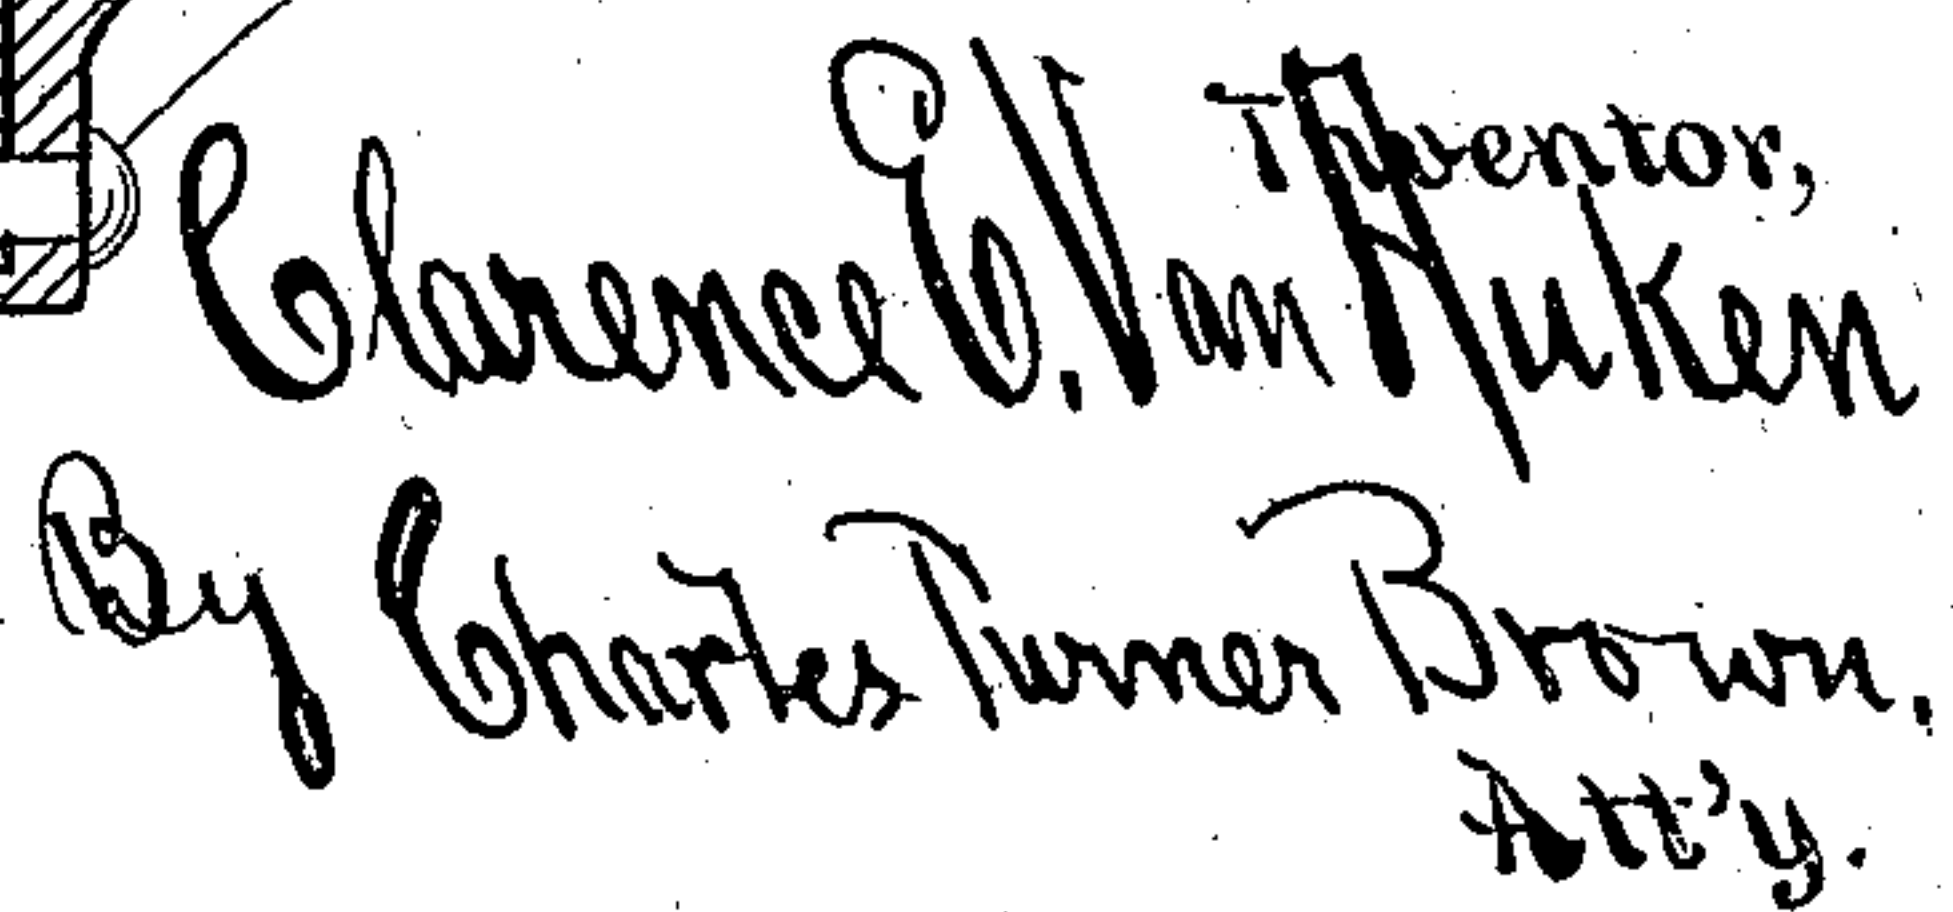 Inventor,
Clarence E. Van Auken
By Charles Turner Brown.
Att'y.